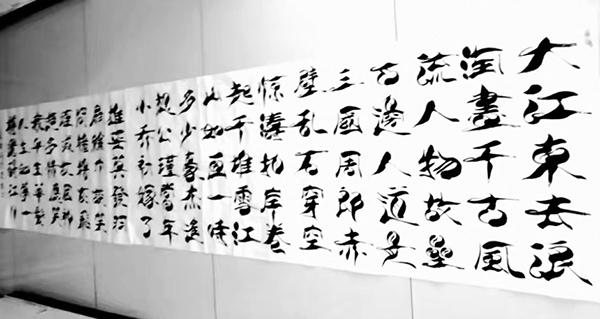 大江東去浪
淘盡千古風
流人物故壘
西邊人道是
三國周郎赤
壁乱石穿空
惊濤拍岸卷
起千堆雪江
山如画一時
多少豪杰遥
想公瑾當年
小乔初嫁了
雄姿英發羽
扇綸巾談笑
間檣櫓灰飛
煙滅故國神
遊多情應笑
我早生華髮
人生如夢一
尊還酹江月